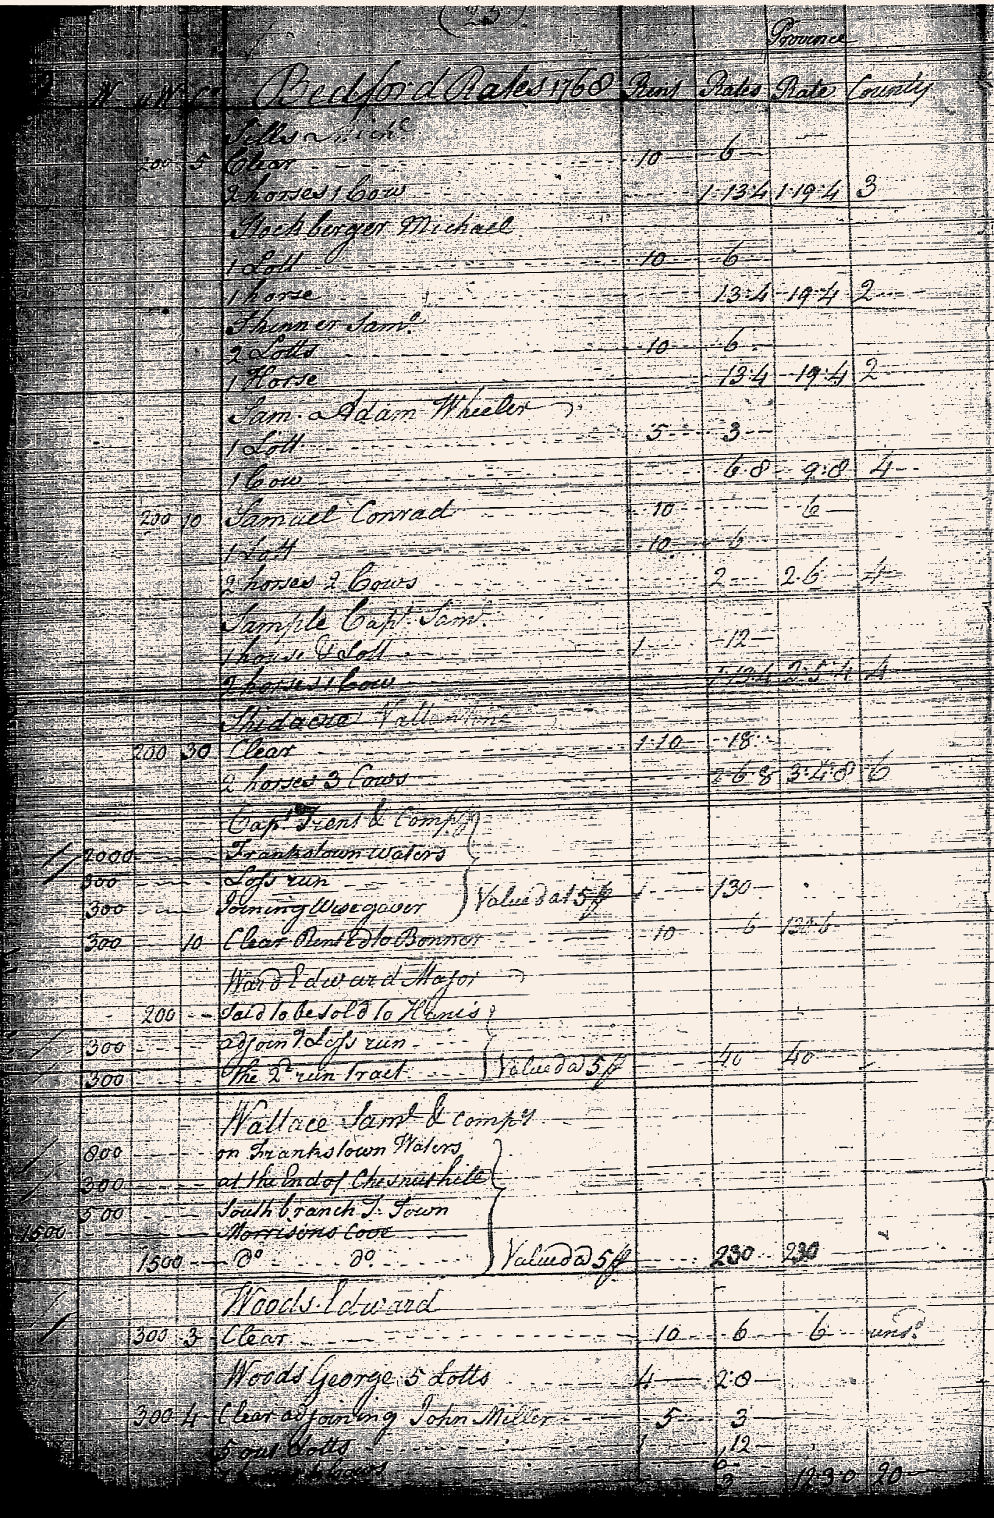 (23)
Province
W uW Cr Bedford Rates 1768 Runs Rates Rate County
Sills Michl
200 5 Clear 10 6
2 horses 1 Cow 1-13-4 1-19-4 3
Rock berger Michael
1 Lott 10 6
1 horse 13-4 19-4 2
Skinner Saml
2 Lotts 10 6
1 Horse 13-4 19-4 2
Sam. Adam Wheeler
1 Lott 5 3
1 Cow 6-8 9-8 4
200 10 Samuel Conrad 10 6
1 Lott 10 6
2 horses 2 Cows 2 2-6 4
Sample Capt. Saml
1 house & Lott 1 12
2 horses 1 Cow 1-13-4 2-5-4 4
Shidacra Vallentine
200 30 Clear 1-10 18
2 horses 3 Cows 2-6-8 3-4-8 6
Capt Trent & Compy
2000 Frankstown waters
300 Loss run
300 Joining Wisegaver Valued at 5 p 130
300 10 Clear Rented to Bonner 10 6 130-6
Ward Edward Major
200 Said to be sold to Hanis
300 adjoing Loss run
300 the 2d run tract Valued a 5 p 40 40
Wallace Saml & Compy
800 on Frankstown Waters
300 at the End of Chesnuthill
500 South branch F. Town
1500 Morrisons Cove
1500 do do Valued a 5 p 230 230
Woods Edward
300 3 Clear 10 6 6 unsd
Woods George 5 Lotts 4 2-8
300 4 Clear adjoining John Miller 5 3
5 out Lotts 1 12
Cows 3 1230 20